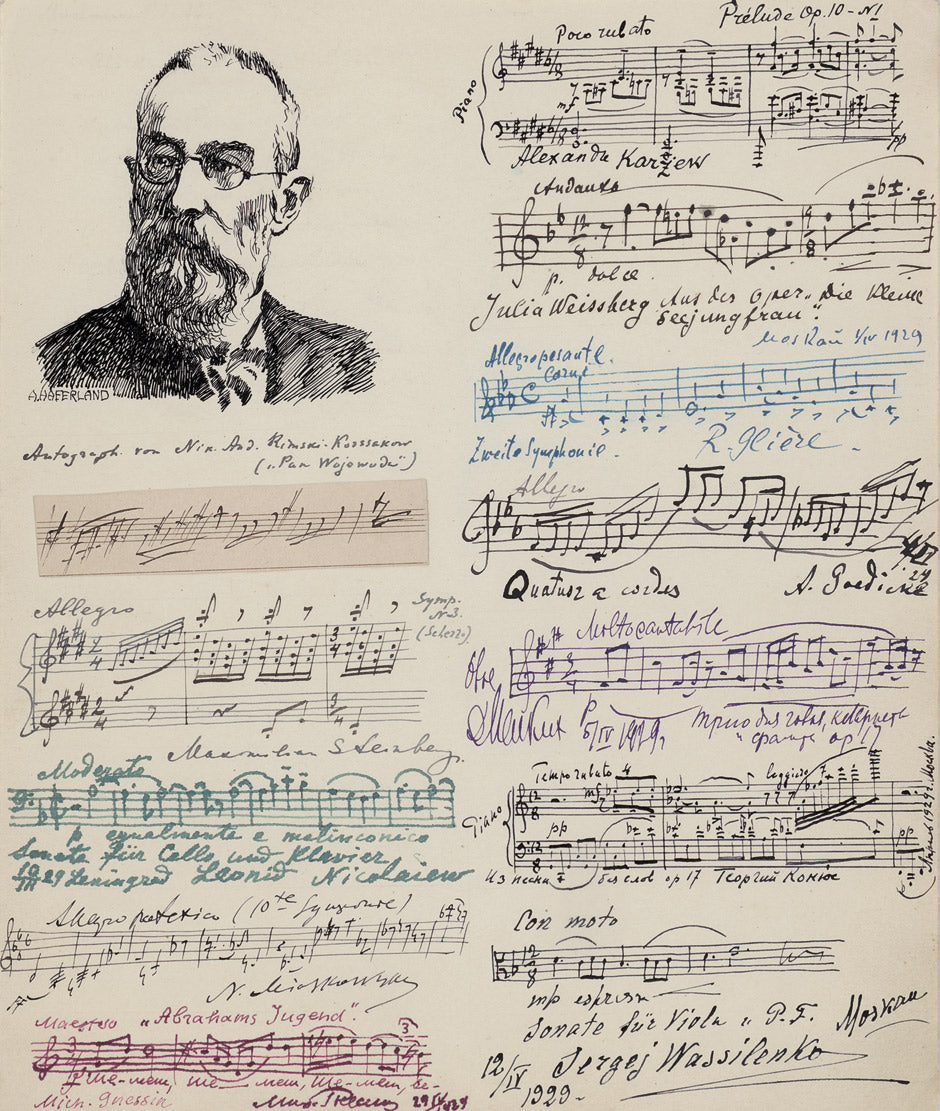 A.HAFERLAND
Autograph. von Nik. And. Rimski-Korssakow
("Pan Wojewoda")
Allegro
Symp.
N 3.
(Scherzo)
Maximilian Steinberg.
Moderato
p egualmente e malinconico
Sonate für Cello und Klavier
29 Leningrad Leonid Nicolaiew
Allegro patetico (10te Symphonie)
N. Miaskowsky
Maestoso "Abrahams Jugend".
3
Me-mem, me mem, me-mem, be-
Mich. Gnessin
Prélude Op. 10 - N1
Poco rubato
Piano
mf
pp
Alexandre
Andante
p. dolce.
Julia Weissberg Aus der Oper "Die kleine
Seejungfrau".
Moskau 1/IV 1929
Allegro pesante.
Corni
Zweite Symphonie.
R. Glière
Allegro
Quatuor a cordes
A. Goedicke
Molto cantabile
Oboe
6/IV 1929 г.
op 17
Tempo rubato
4
leggiero
mf
Piano
pp
pp
Из песни без слов op 17 Георгий Конюс
1929 г. Москва.
Con moto
mp espress
Sonate für Viola u P.F.
Moskau
12/IV
1929-
Sergej Wassilenko